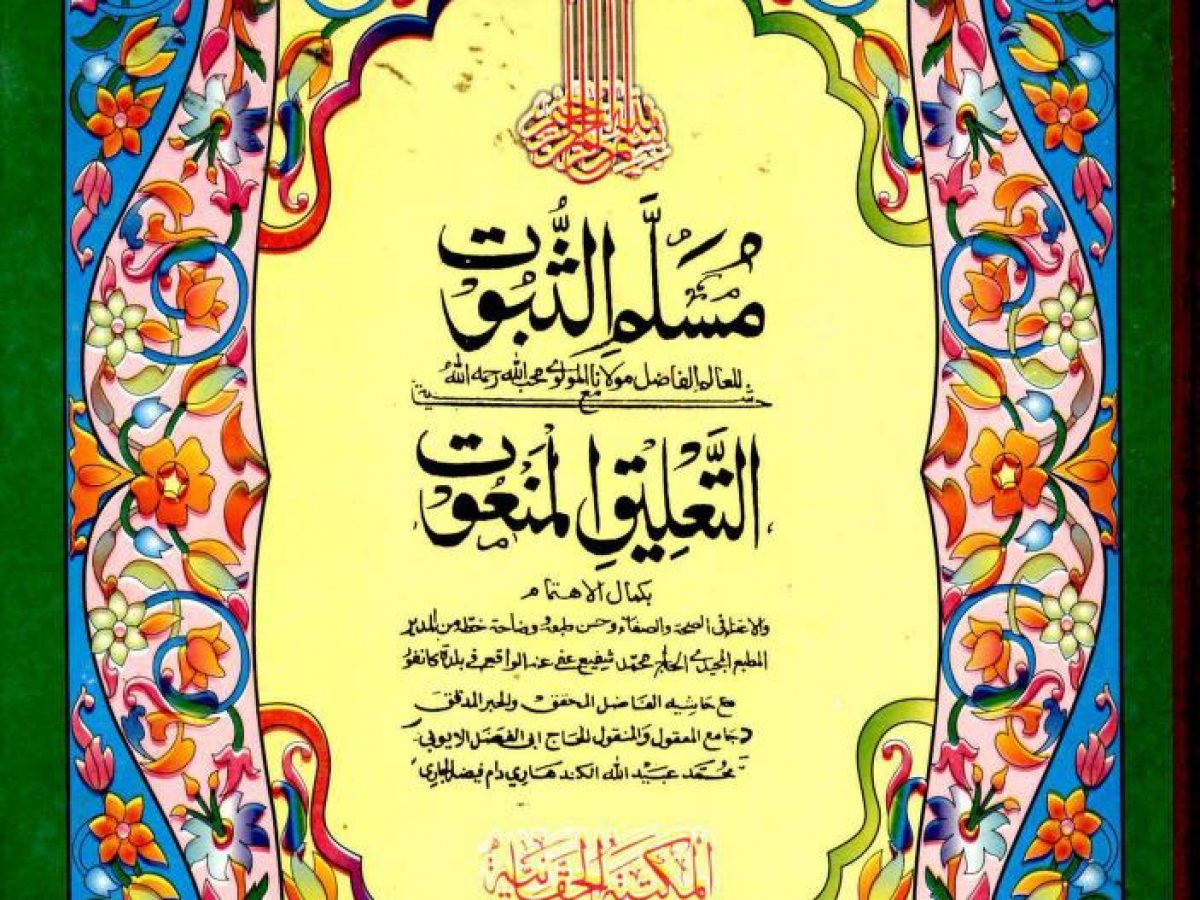 بسم الله الرحمن الرحيم
مُسَلَّمُ الثُّبُوْت
للعالم الفاضل مولانا المولوي محب الله رحمه الله
مع حاشية
التَّعْلِيْقِ المَنْعُوْت
بكمال الاهتمام
والاعتناء في الصحة والصفاء وحسن طبعه ووضاحة خطه من المدير
المطبع المجيدي الحاج محمد شفيع عفي عنه الواقع في بلدة كانفو
مع حاشيه الفاضل المحقق والحبر المدقق
جامع المعقول والمنقول الحاج ابي الفضل الايوبي
محمد عبيد الله الكندهاري دام فيضه الجاري
المكتبة الحقانية